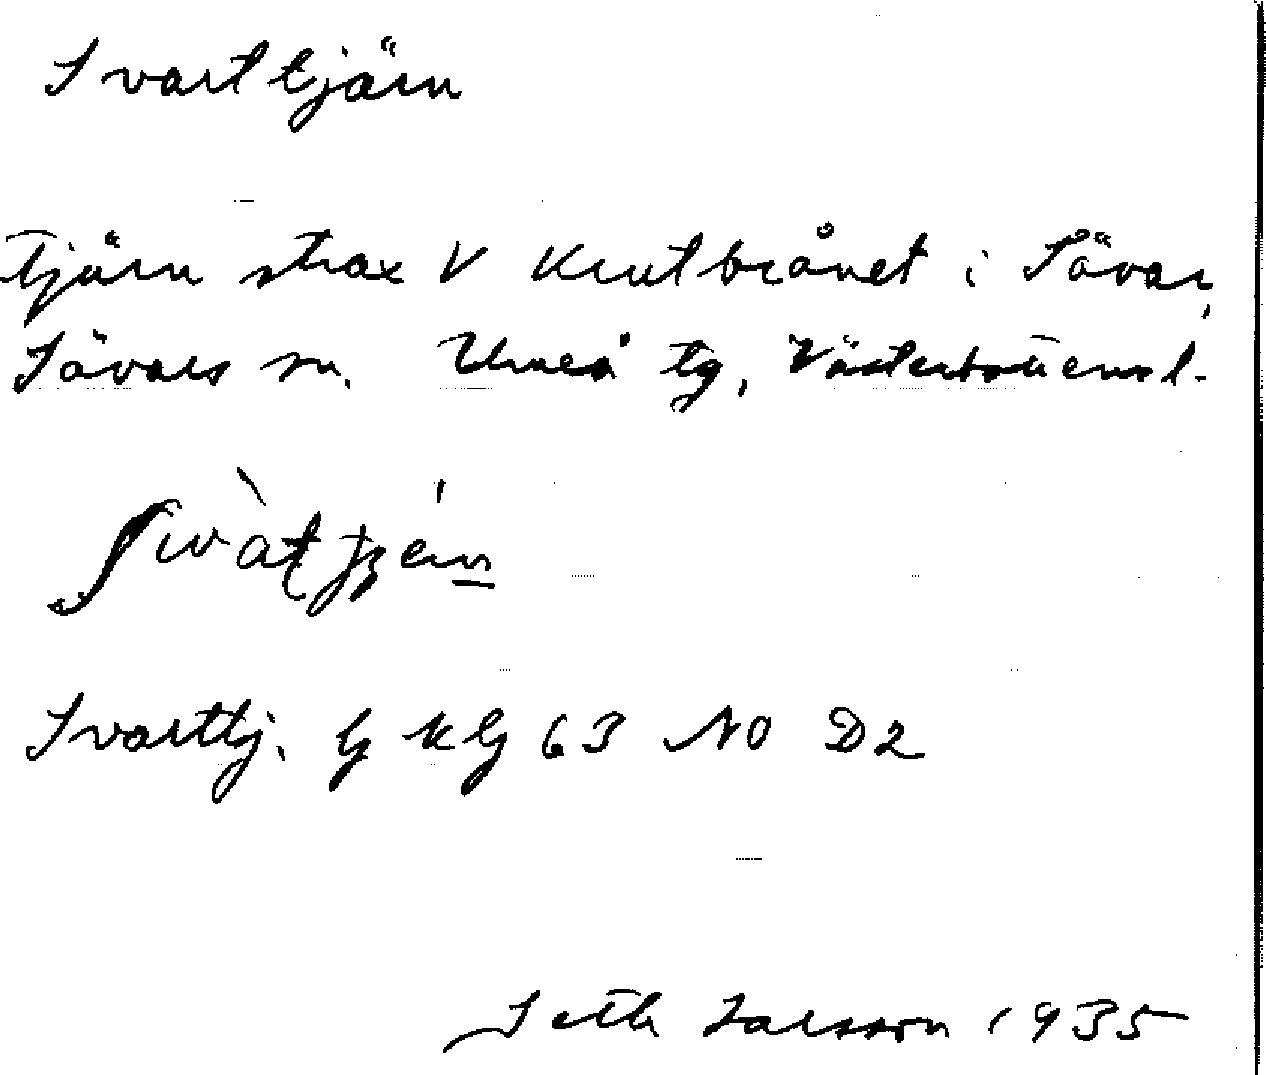 Svarttjärn
Tjärn strax V Krutbrånet i Sävar,
Sävars sn. Umeå tg, Västerbottens l.
Svarttj. G K G 63 NO D2
Seth Larsson 1935